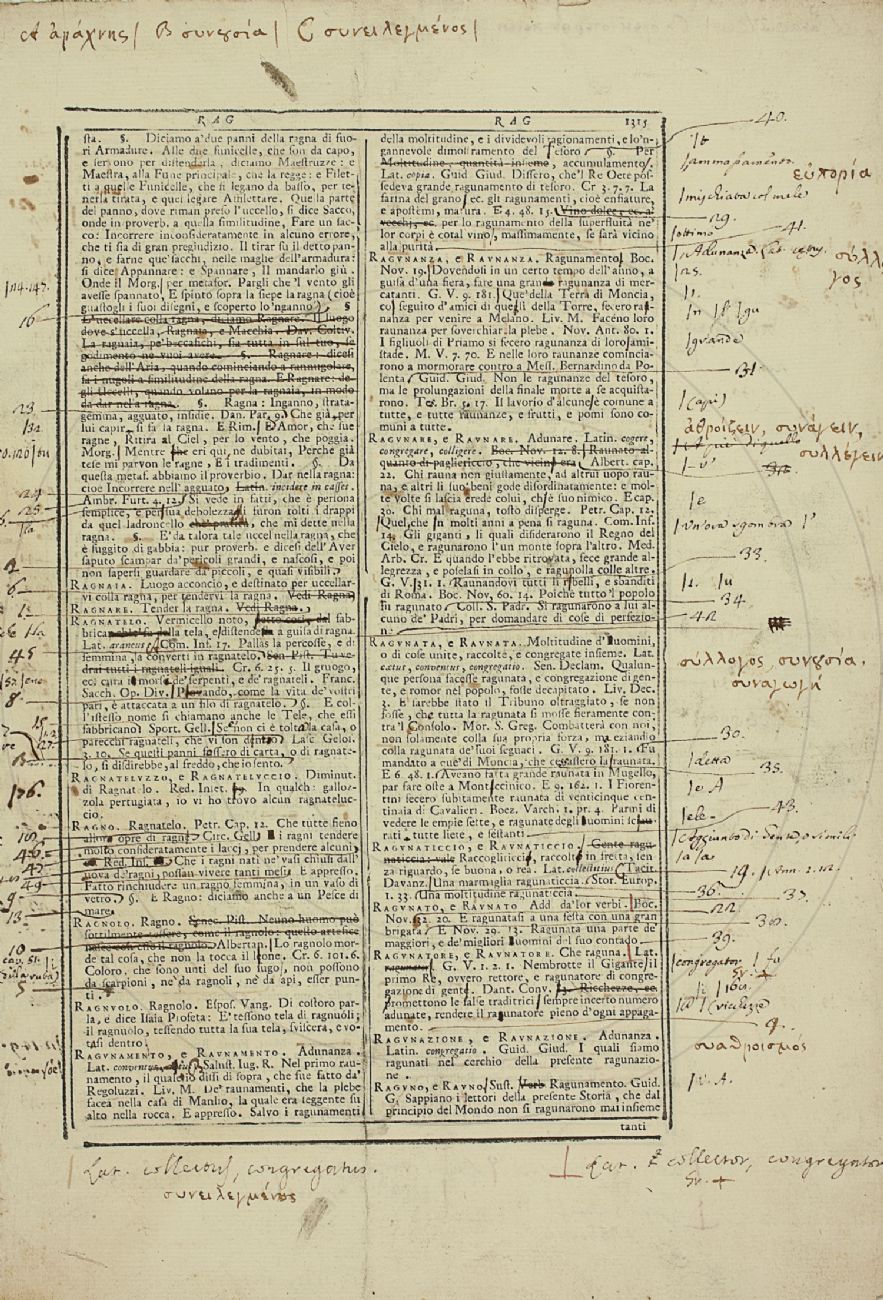 A ἀράχνης | B συνουσία | C συνειλεγμένος |
RAG RAG 1315
sta. §. Diciamo a' due panni della ragna di fuo-
ri Armadure. Alle due funicelle, che son da capo,
e servono per distenderla, diciamo Maestruzze: e
Maestra, alla Fune principale, che la regge: e Filet-
ti a quelle Funicelle, che si legano da basso, per te-
nerla tirata, e quel legare Affilettare. Quella parte
del panno, dove riman preso l'uccello, si dice Sacco,
onde in proverb. a quella similitudine, Fare un sac-
co: Incorrere inconsideratamente in alcuno errore,
che ti sia di gran pregiudizio. Il tirar su il detto pan-
no, e farne que' sacchi, nelle maglie dell'armadura:
si dice Appannare: e Spannare, Il mandarlo giù.
Onde il Morg. per metafor. Pargli che 'l vento gli
avesse spannato, E spinto sopra la siepe la ragna (cioè
guastogli i suoi disegni, e scoperto lo 'nganno). §
D'uccellare colla ragna, diciamo Ragnare: Il luogo
dove s'uccella, Ragnaia, e Macchia. Dav. Coltiv.
La ragnaia, pe' beccafichi, sia tutta in sul tuo, se
godimento ne vuoi avere. §. Ragnare: dicesi
anche dell'Aria, quando cominciando a rannugolare,
fa i nugoli a similitudine della ragna. E Ragnare: de-
gli Uccelli, quando volano per la ragnaia, in modo
da dar nella ragna. §. Ragna: Inganno, strata-
gemma, agguato, insidie. Dan. Par. 9. Che già per
lui carpir si fa la ragna. E Rim. D'Amor, che sue
ragne, Ritira al Ciel, per lo vento, che poggia.
Morg. Mentre che eri qui ne dubitai, Perchè già
tese mi parvon le ragne, E i tradimenti. §. Da
questa metaf. abbiamo il proverbio. Dar nella ragna:
cioè Incorrere nell'agguato, Latin. incidere in casses.
Ambr. Furt. 4. 12. Si vede in fatti, che è persona
semplice, e per sua debolezza gli furon tolti i drappi
da quel ladroncello che pratica, che mi dette nella
ragna. §. E' da talora tale uccel nella ragna, che
è fuggito di gabbia: pur proverb. e dicesi dell'Aver
saputo scampar da' pericoli grandi, e nascosi, e poi
non sapersi guardare da' piccoli, e quasi visibili.
RAGNAIA. Luogo acconcio, e destinato per uccellar-
vi colla ragna, per tendervi la ragna. Vedi Ragna.
RAGNARE. Tender la ragna. Vedi Ragna.
RAGNATELO. Vermicello noto, detto così, dal fab-
bricar ch'e' fa della tela, e distenderla a guisa di ragna.
Lat. araneus. Com. Inf. 17. Pallas la percosse, e di
femmina, la convertì in ragnatelo. Sen. Pist. Tu ve-
dra' tutti i ragnateli iguali. Cr. 6. 25. 5. Il gruogo,
ec. cura i morsi de' serpenti, e de' ragnateli. Franc.
Sacch. Op. Div. Provando, come la vita de' vostri
pari, è attaccata a un filo di ragnatelo. §. E col-
l'istesso nome si chiamano anche le Tele, che essi
fabbricano. Sport. Gell. Se non ci è tolta la casa, o
parecchi ragnateli, che vi son dentro. Lasc. Gelos.
3. 10. Se questi panni fossero di carta, o di ragnate-
lo, si disdirebbe, al freddo, che io sento.
RAGNATELUZZO, e RAGNATELUCCIO. Diminut.
di Ragnatelo. Red. Inset. In qualche galloz-
zola pertugiata, io vi ho trovo alcun ragnateluc-
cio.
RAGNO. Ragnatelo. Petr. Cap. 12. Che tutte fieno
allora opre di ragni. Circ. Gell. I ragni tendere
molto consideratamente i lacci, per prendere alcuni,
ec. Red. Ins. Che i ragni nati ne' vasi chiusi dall'
uova de' ragni, possan vivere tanti mesi. E appresso.
Fatto rinchiudere un ragno femmina, in un vaso di
vetro. §. E Ragno: diciamo anche a un Pesce di
mare.
RAGNOLO. Ragno. Senec. Pist. Neuno huomo può
sottilmente tessere, come il ragnolo: questo artefice
nasce così che il ragnolo. Albertan. Lo ragnolo mor-
de tal cosa, che non la tocca il lione. Cr. 6. 101. 6.
Coloro, che sono unti del suo sugo, non possono
da scarpioni, nè da ragnoli, nè da api, esser pun-
ti.
RAGNUOLO. Ragnolo. Espos. Vang. Di costoro par-
la, e dice Isaia Profeta: E' tessono tela di ragnuoli;
il ragnuolo, tessendo tutta la sua tela, sviscera, e vo-
tasi dentro.
RAGUNAMENTO, e RAUNAMENTO. Adunanza.
Lat. conventus. Salust. Iug. R. Nel primo rau-
namento, il quale io dissi di sopra, che fue fatto da'
Regoluzzi. Liv. M. De' raunamenti, che la plebe
facea nella casa di Manlio, la quale era leggente su
alto nella rocca. E appresso. Salvo i ragunamenti
della moltitudine, e i dividevoli ragionamenti, e lo 'n-
gannevole dimostramento del Tesoro. §. Per
Moltitudine, quantità insieme, accumulamento.
Lat. copia. Guid. Giud. Dissero, che 'l Re Oete pos-
sedeva grande ragunamento di tesoro. Cr 3. 7. 7. La
farina del grano, ec. gli ragunamenti, cioè enfiature,
e apostemi, matura. E 4. 48. 15. Vino dolce, ec. a'
vecchi, ec. per lo ragunamento della superfluità ne'
lor corpi è cotal vino, massimamente, se sarà vicino
alla purità.
RAGUNANZA, e RAUNANZA. Ragunamento. Boc.
Nov. 19. Dovendosi in un certo tempo dell'anno, a
guisa d'una fiera, fare una grande ragunanza di mer-
catanti. G. V. 9. 181. Que' della Terra di Moncia,
col seguito d'amici di quegli della Torre, fecero ra-
unanza per venire a Melano. Liv. M. Faceno loro
raunanza per soverchiar la plebe. Nov. Ant. 80. 1.
I figliuoli di Priamo si fecero ragunanza di loro ami-
stade. M. V. 7. 70. E nelle loro raunanze comincia-
rono a mormorare contro a Mess. Bernardino da Po-
lenta. Guid. Giud. Non le ragunanze del tesoro,
ma le prolungazioni della finale morte a se acquista-
rono. Tes. Br. 1. 17. Il lavorio d'alcuno è comune a
tutte, e tutte raunanze, e frutti, e pomi sono co-
muni a tutte.
RAGUNARE, e RAUNARE. Adunare. Latin. cogere,
congregare, colligere. Boc. Nov. 12. 8. Raunato al-
quanto di pagliericcio, che vicin v'era. Albert. cap.
22. Chi rauna non giustamente, ad altrui uopo rau-
na, e altri li suo' beni gode disordinatamente: e mol-
te volte si lascia erede colui, ch'è suo nimico. E cap.
30. Chi mal raguna, tosto disperge. Petr. Cap. 12.
Quel, che 'n molti anni a pena si raguna. Com. Inf.
14. Gli giganti, li quali disideraro il Regno del
Cielo, e ragunarono l'un monte sopra l'altro. Med.
Arb. Cr. E quando l'ebbe ritrovata, fece grande al-
legrezza, e poselasi in collo, e ragunolla colle altre.
G. V. 31. 1. Raunandovi tutti li ribelli, e sbanditi
di Roma. Boc. Nov. 60. 14. Poichè tutto 'l popolo
fu ragunato. Coll. S. Padr. Si ragunarono a lui al-
cuno de' Padri, per domandare di cose di perfezio-
ne.
RAGUNATA, e RAUNATA. Moltitudine d'uomini,
o di cose unite, raccolte, e congregate insieme. Lat.
cœtus, conventus, congregatio. Sen. Declam. Qualun-
que persona facesse ragunata, e congregazione di gen-
te, e romor nel popolo, fosse decapitato. Liv. Dec.
3. E sarebbe stato il Tribuno oltraggiato, se non
fosse, che tutta la ragunata si mosse fieramente con-
tra 'l Consolo. Mor. S. Greg. Combatterà con noi,
non solamente colla sua propria forza, ma eziandio
colla ragunata de' suoi seguaci. G. V. 9. 181. 1. Fu
mandato a que' di Moncia, che cessassero la raunata.
E 6. 48. 1. Aveano fatta grande raunata in Mugello,
par fare oste a Montaccinico. E 9. 162. 1. I Fioren-
tini fecero subitamente raunata di venticinque cen-
tinaia di Cavalieri. Boez. Varch. 1. pr. 4. Parmi di
vedere le empie sette, e ragunate degli uomini sciau-
rati, tutte liete, e festanti.
RAGUNATICCIO, e RAUNATICCIO. Gente ragu-
naticcia: vale Raccogliticcia, raccolta in fretta, sen-
za riguardo, se buona, o rea. Lat. collectitius. Tacit.
Davanz. Una marmaglia ragunaticcia. Stor. Europ.
1. 33. Una moltitudine ragunaticcia.
RAGUNATO, e RAUNATO. Add. da' lor verbi. Boc.
Nov. 32. 20. E ragunatasi a una festa con una gran
brigata. E Nov. 29. 13. Ragunata una parte de'
maggiori, e de' migliori uomini del suo contado.
RAGUNATORE, e RAUNATORE. Che raguna. Lat.
G. V. 1. 2. 1. Nembrotte il Gigante, il
primo Re, ovvero rettore, e ragunatore di congre-
gazione di gente. Dant. Conv. 53. Ricchezze, ec.
promettono le false traditrici, sempre in certo numero
adunate, rendere il ragunatore pieno d'ogni appaga-
mento.
RAGUNAZIONE, e RAUNAZIONE. Adunanza.
Latin. congregatio. Guid. Giud. I quali siamo
ragunati nel cerchio della presente ragunazio-
ne.
RAGUNO, e RAUNO. Sust. Verb. Ragunamento. Guid.
G. Sappiano i lettori della presente Storia, che dal
principio del Mondo non si ragunarono mai insieme
tanti
16
23
24
25
2
6
45
8
176.
49
9
13
10
5
40.
|mischiata col mele
εὐπορία
29.
|ottimo
41.
σύλλο
γος
|grande
31.
ἀθροίζειν, συνάγειν,
συλλέγειν
33.
34
42
σύλλογος, συνουσία,
συναγωγή
30.
|detta
35.
43.
19.
36.
37.
22
38.
39.
|congregator
9.
συναθροισμος
|V. A.
Lat. collectus, congregatus.
συνειλεγμένος
Lat. collector, congregator